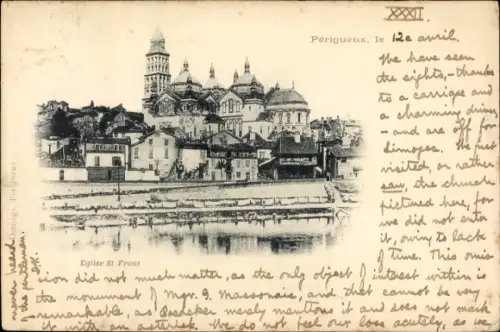 XXXII
Périgueux, le 12e avril.
We have seen
the sights, - thanks
to a carriage and
a charming driver
- and are off for
Limoges. We just
visited, or rather
saw, the church
pictured here, for
we did not enter
it, owing to lack
of time. This omis-
Eglise St Front
sion did not much matter, as the only object of interest within is
the monument of Mgr. G. Massonais, and that cannot be very
remarkable, as Baedeker merely mentions it and does not mark
it with an asterisk. We do not feel our loss acutely, as we
never heard
of the gentleman